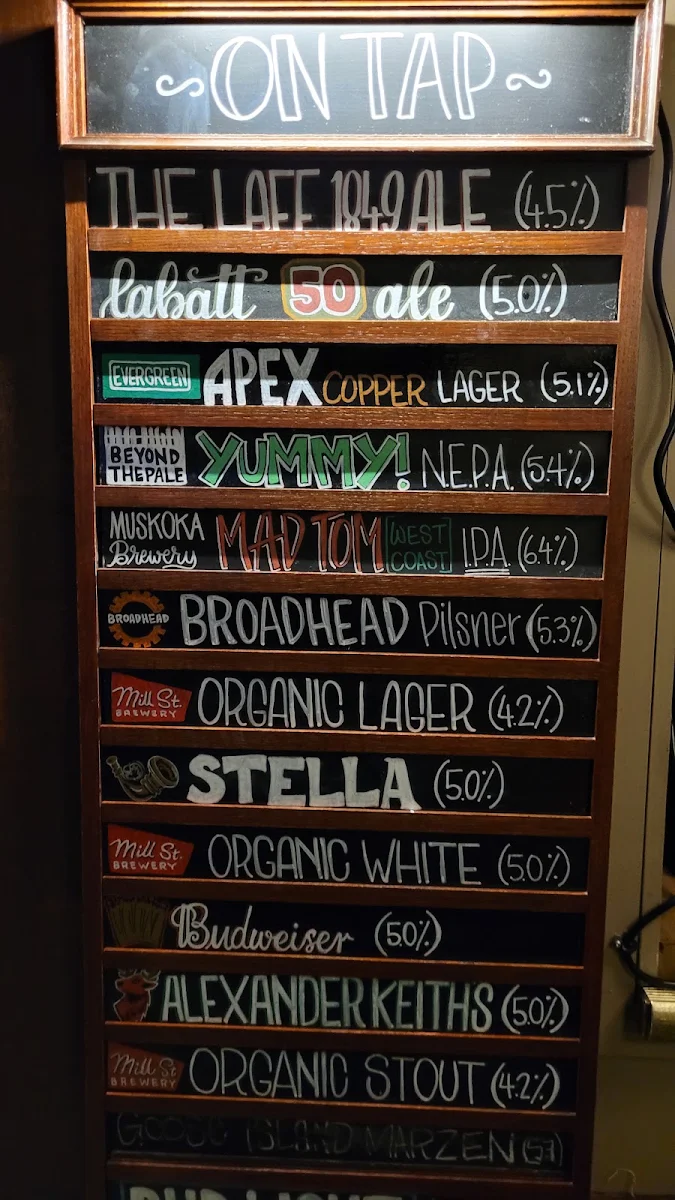 ~ON TAP~
THE LAFF 1849 ALE (4.5%)
labatt 50 ale (5.0%)
EVERGREEN APEX COPPER LAGER (5.1%)
BEYOND THE PALE YUMMY! N.E.P.A. (5.4%)
MUSKOKA Brewery MAD TOM WEST COAST I.P.A (6.4%)
BROADHEAD BROADHEAD Pilsner (5.3%)
Mill St. BREWERY ORGANIC LAGER (4.2%)
STELLA (5.0%)
Mill St. BREWERY ORGANIC WHITE (5.0%)
Budweiser (5.0%)
ALEXANDER KEITHS (5.0%)
Mill St BREWERY ORGANIC STOUT (4.2%)
GOOSE ISLAND MARZEN
BUD LIGHT